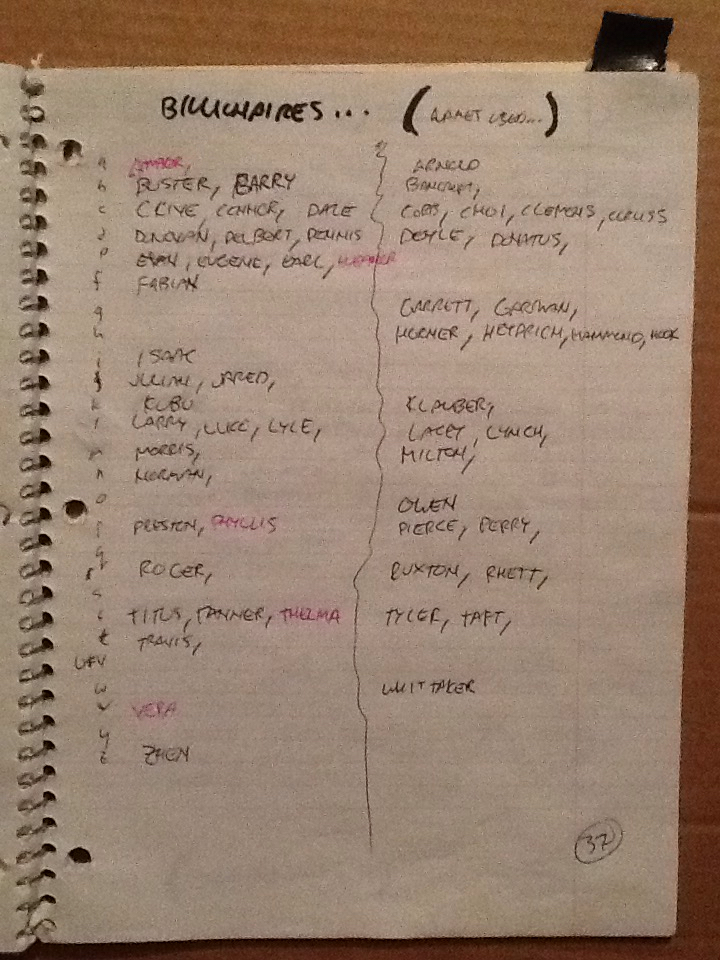 BILLIONAIRES... (
a AMBER, ARNOLD
b BUSTER, BARRY
c CLIVE, CONNOR, DALE COBB, CHOI, CLEMENS,
d DONOVAN, DELBERT, DENNIS DOYLE, DONATUS,
e EVAN, EUGENE, EARL,
f FABIAN
g GARRETT,
h HORNER, HEYDRICH, HAMMOND, HOOK
i ISAAC
j JULIAN, JARED,
k KUBU KLAUBER,
l LARRY, LUKE, LYLE, LACEY, LYNCH,
m MORRIS, MILTON,
n NORMAN,
o OWEN
p PRESTON, PHYLLIS PIERCE, PERRY,
q
r ROGER, RUXTON, RHETT,
s
TITUS, TANNER, THELMA TYLER, TAFT,
t TRAVIS,
U&V
w WHITTAKER
v VERA
y
z ZHEN
37